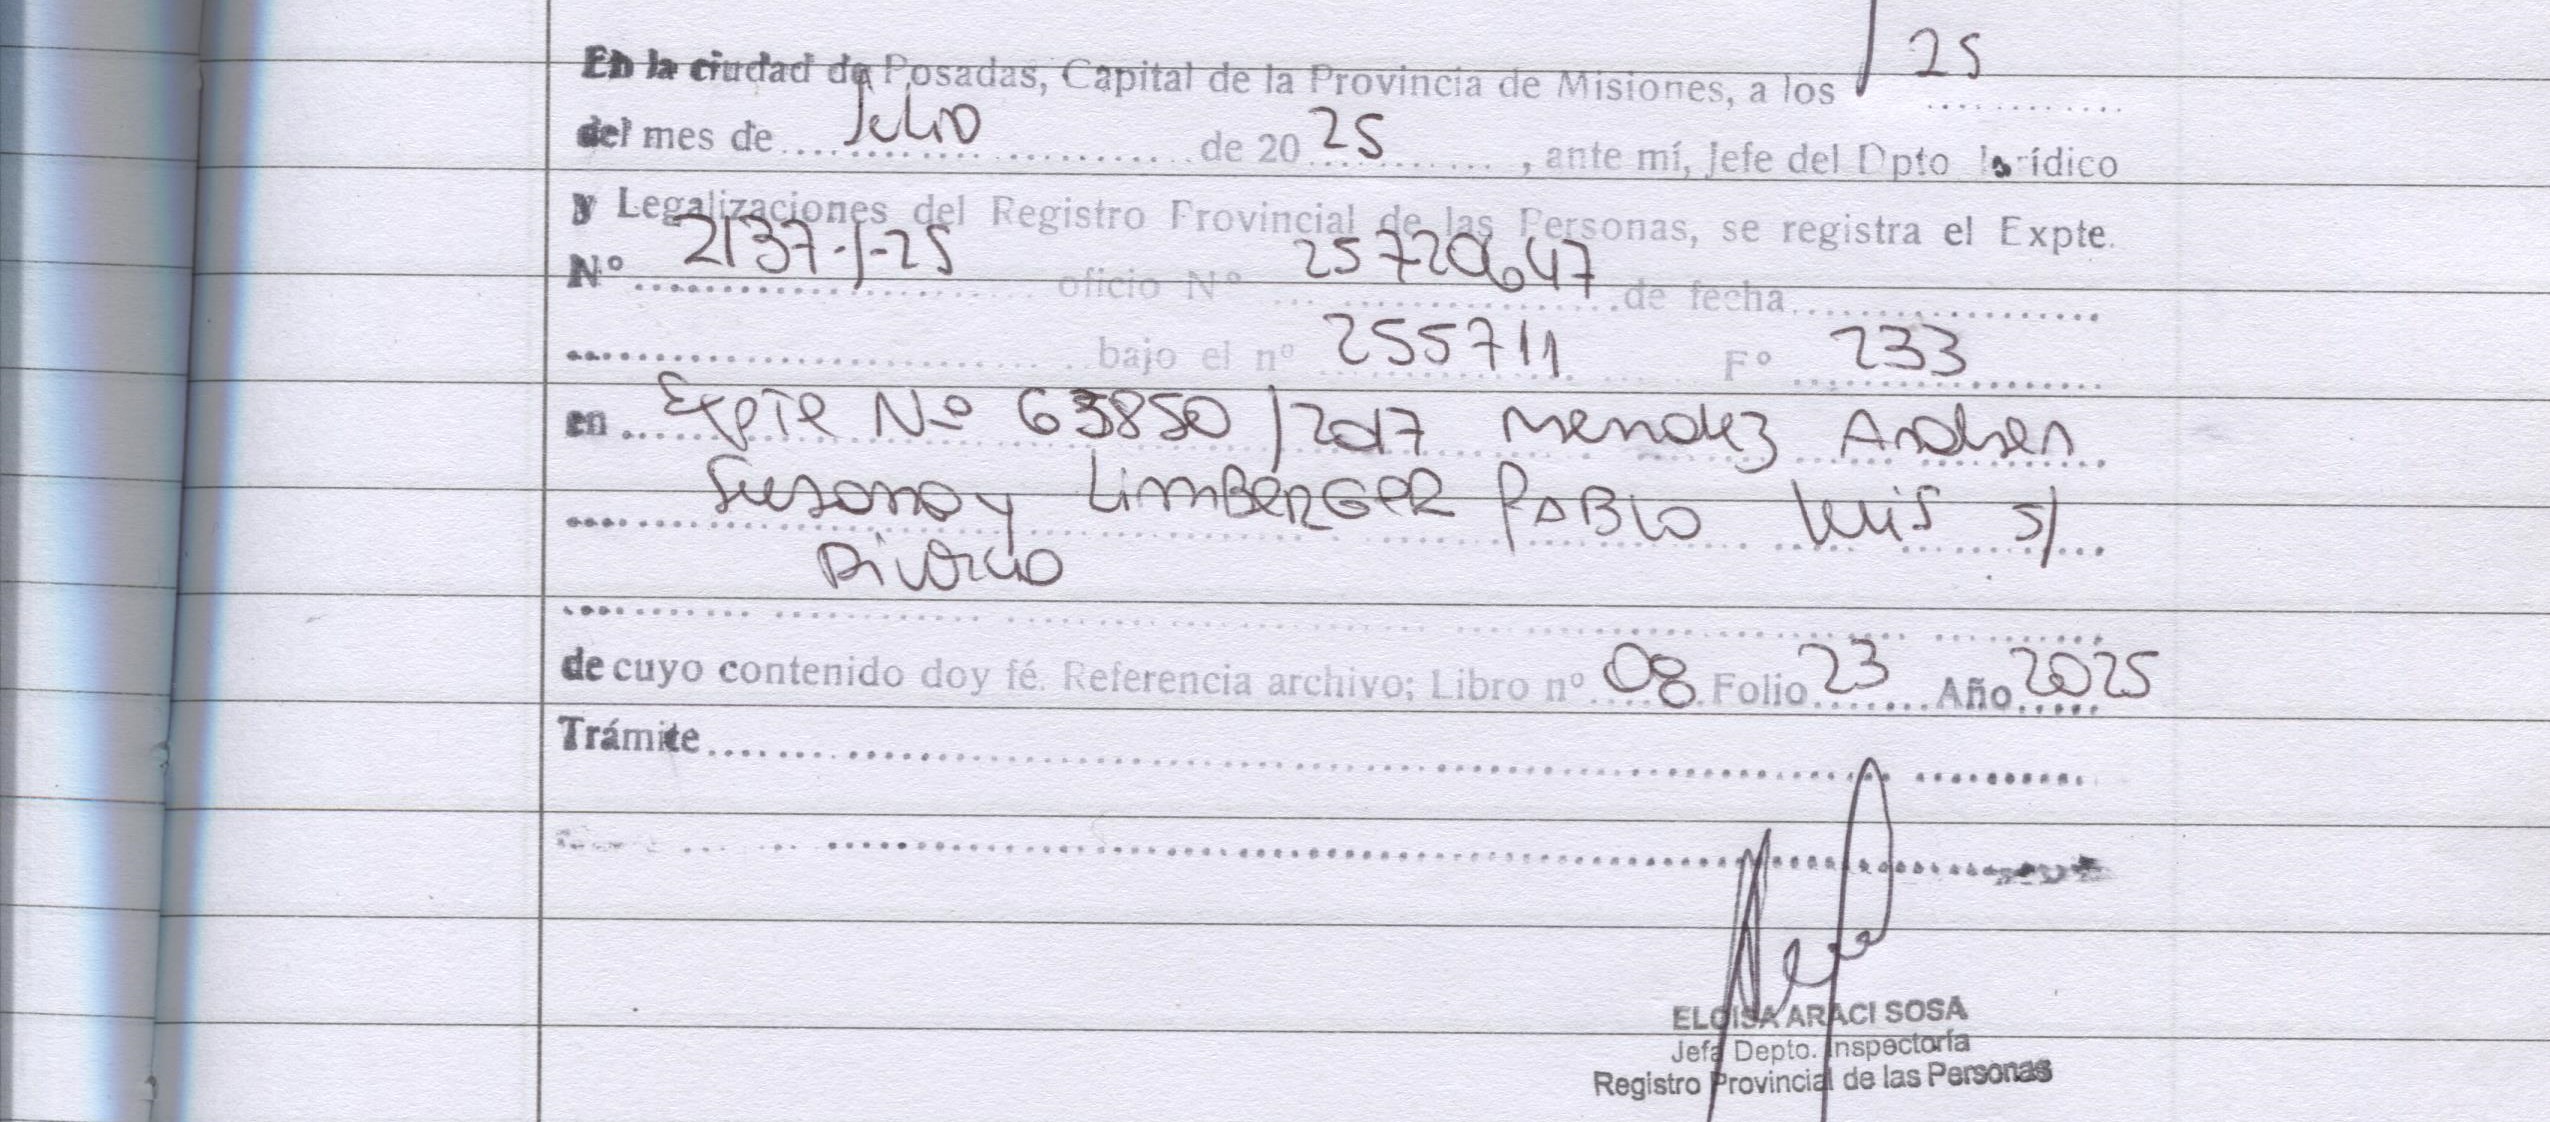 En la ciudad de Posadas, Capital de la Provincia de Misiones, a los 25
del mes de Julio de 2025, ante mí, Jefe del Dpto Jurídico
y Legalizaciones del Registro Provincial de las Personas, se registra el Expte.
Nº 2137-J-25 oficio Nº 25720647 de fecha
bajo el nº 255711 Fº 233
en Expte Nº 63850/2017 Mendez Andrea
Susana y LIMBERGER PABLO Luis s/
Divorcio
de cuyo contenido doy fé. Referencia archivo; Libro nº 08 Folio 23 Año 2025
Trámite
ELOISA ARACI SOSA
Jefa Depto. Inspectoría
Registro Provincial de las Personas